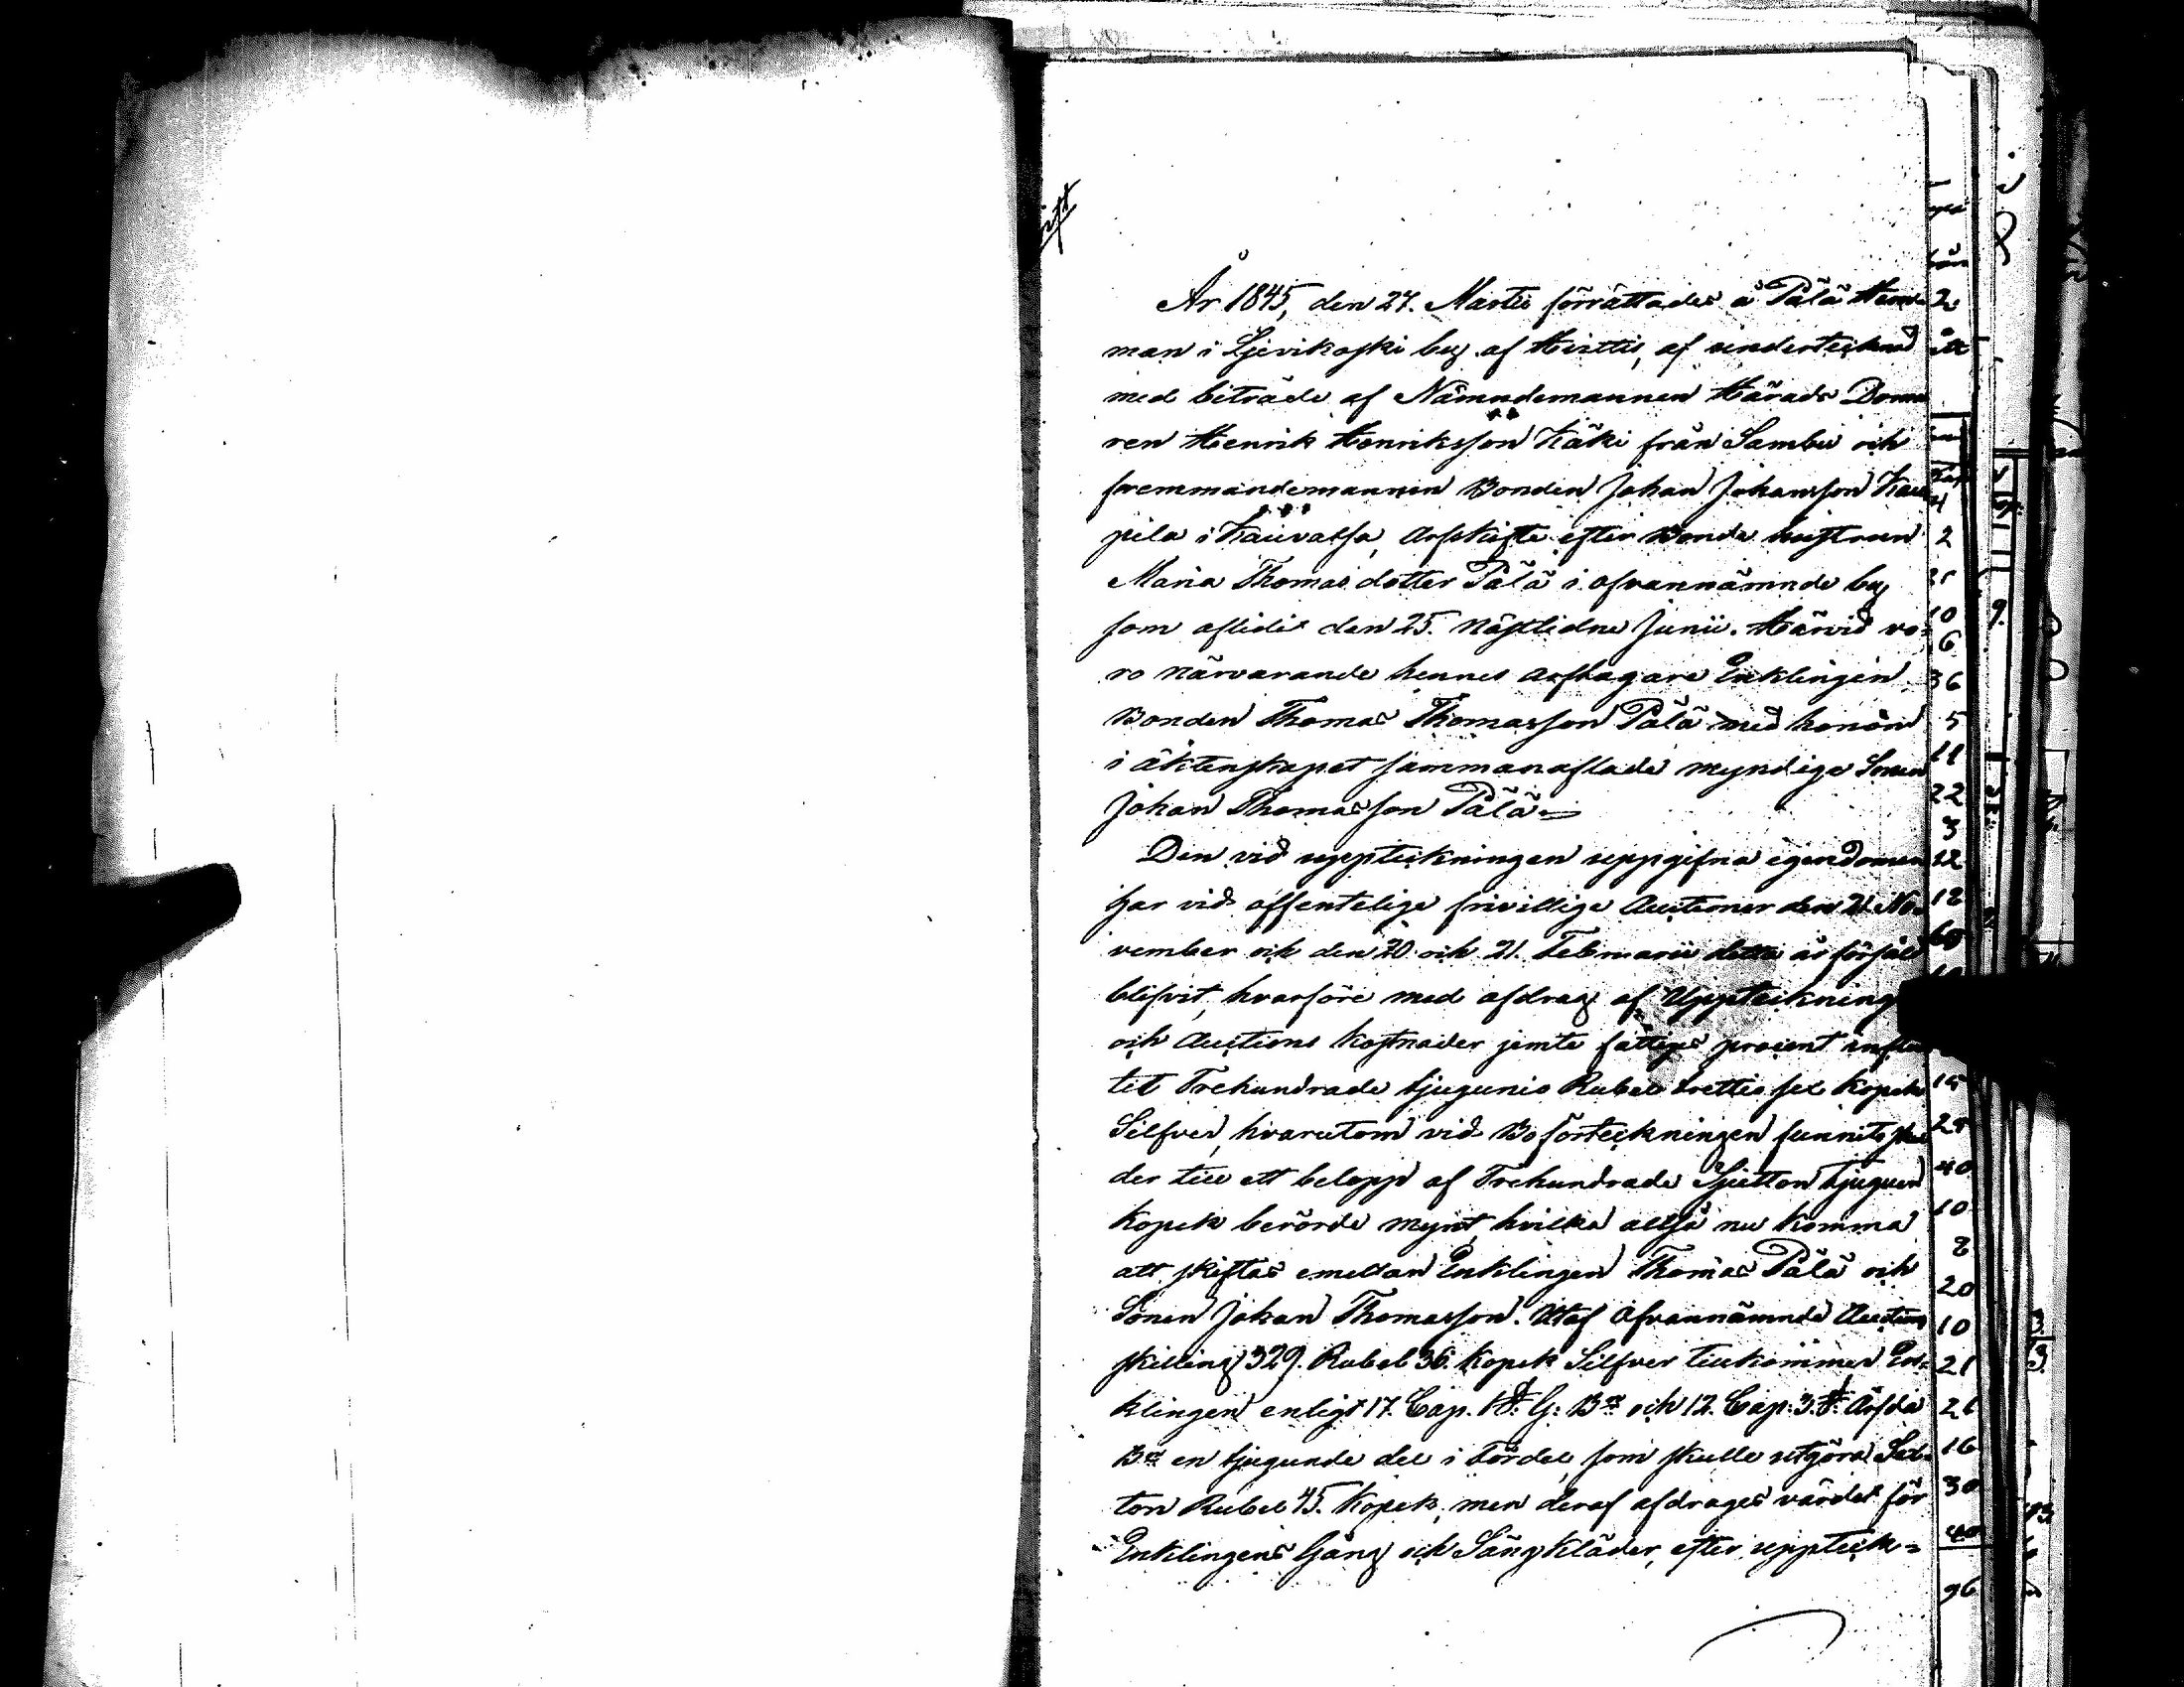 År 1845, den 27. Martii förrättades å Pälä Hem-
man i Ljevikoski by af Hvittis, af undertecknad
med biträde af Nämndemannen Härads Doma
ren Henrik Henriksson Käki från Sambu och
fremmandemannen Bonden Johan Johansson Kau
pila i Kauvatsa, Arfskifte efter Bonde hustrun
Maria Thomas dotter Pälä i ofvannämnde by
som aflidit den 25. nästlidne Junii. Härvid vo-
ro närvarande hennes arftagare Enklingen
Bonden Thomas Thomasson Pälä med honom
i äktenskapet sammanaflade myndige Sonen
Johan Thomasson Pälä
Den vid uppteckningen uppgifna egendomen
har vid offentelige frivillige Auctioner den 21 No-
vember och den 20 och 21. Februarii detta år försåld
blifvit, hvarföre med afdrag af Uppteknings
och Auctions kostnader jemte fattigs procent influ
tit Trehundrade tjugunio Rubel trettio sex kopek
Silfver, hvarutom vid Boförteckningen funnits skul
der till ett belopp af Trehundrade Sjutton tjugu
Kopek berörde mynt, hvilka altså nu komma
att skiftas emellan Enklingen Thomas Pälä och
Sonen Johan Thomasson. Utaf ofvannämnde Auctions
skilling 329. Rubel 36. Kopek Silfver tillkommer En-
klingen enligt 17. Cap. 1 §. G: Bn och 12. Cap. 3. §. Ärfda
Bn en tjugunde del i fördel, som skulle utgöra Sex-
ton Rubel 45. Kopek, men deraf afdrages värdet för
Enklingens Gång och Sängkläder, efter uppteck-